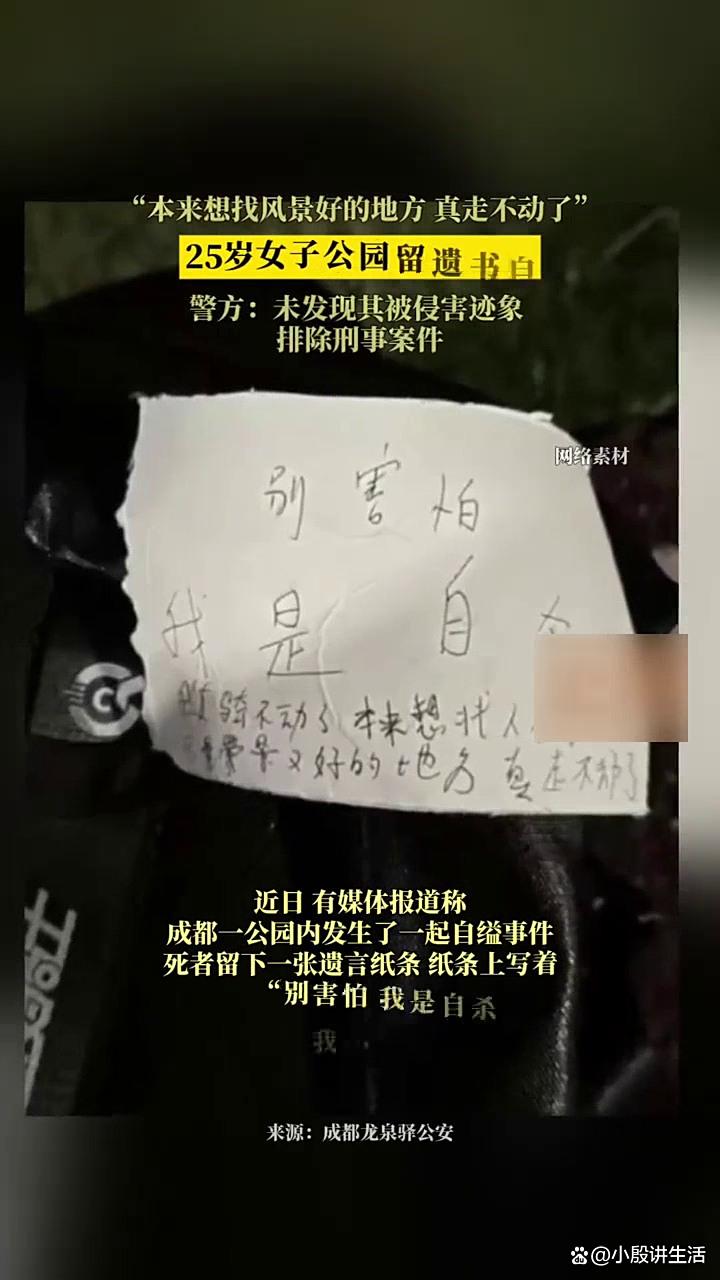 “本来想找风景好的地方 真走不动了”
25岁女子公园留遗书自
警方：未发现其被侵害迹象
排除刑事案件
网络素材
别害怕
我是自
骑不动了 本来想找人
景又好的地方 真走不动了
近日 有媒体报道称
成都一公园内发生了一起自缢事件
死者留下一张遗言纸条 纸条上写着
“别害怕 我是自杀
我
来源：成都龙泉驿公安
@小殷讲生活